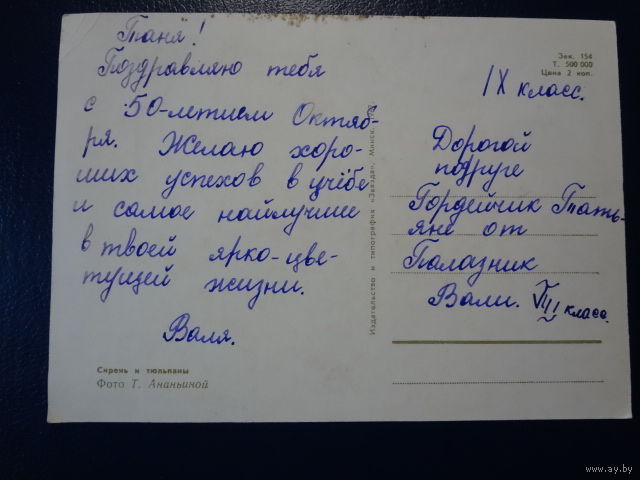 Таня!
Поздравляю тебя
с 50-летием Октяб-
ря. Желаю хоро-
ших успехов в учёбе
и самое найлучшее
в твоей ярко-цве-
тущей жизни.
Валя.
Сирень и тюльпаны
Фото Т. Ананьиной
Издательство и типография «Звязда», Минск.
Зак. 154
Т. 500 000
Цена 2 коп.
IX класс.
Дорогой
подруге
Гордейчик Тать-
яне от
Палазник
Вали. VIII класса.
www.ay.by